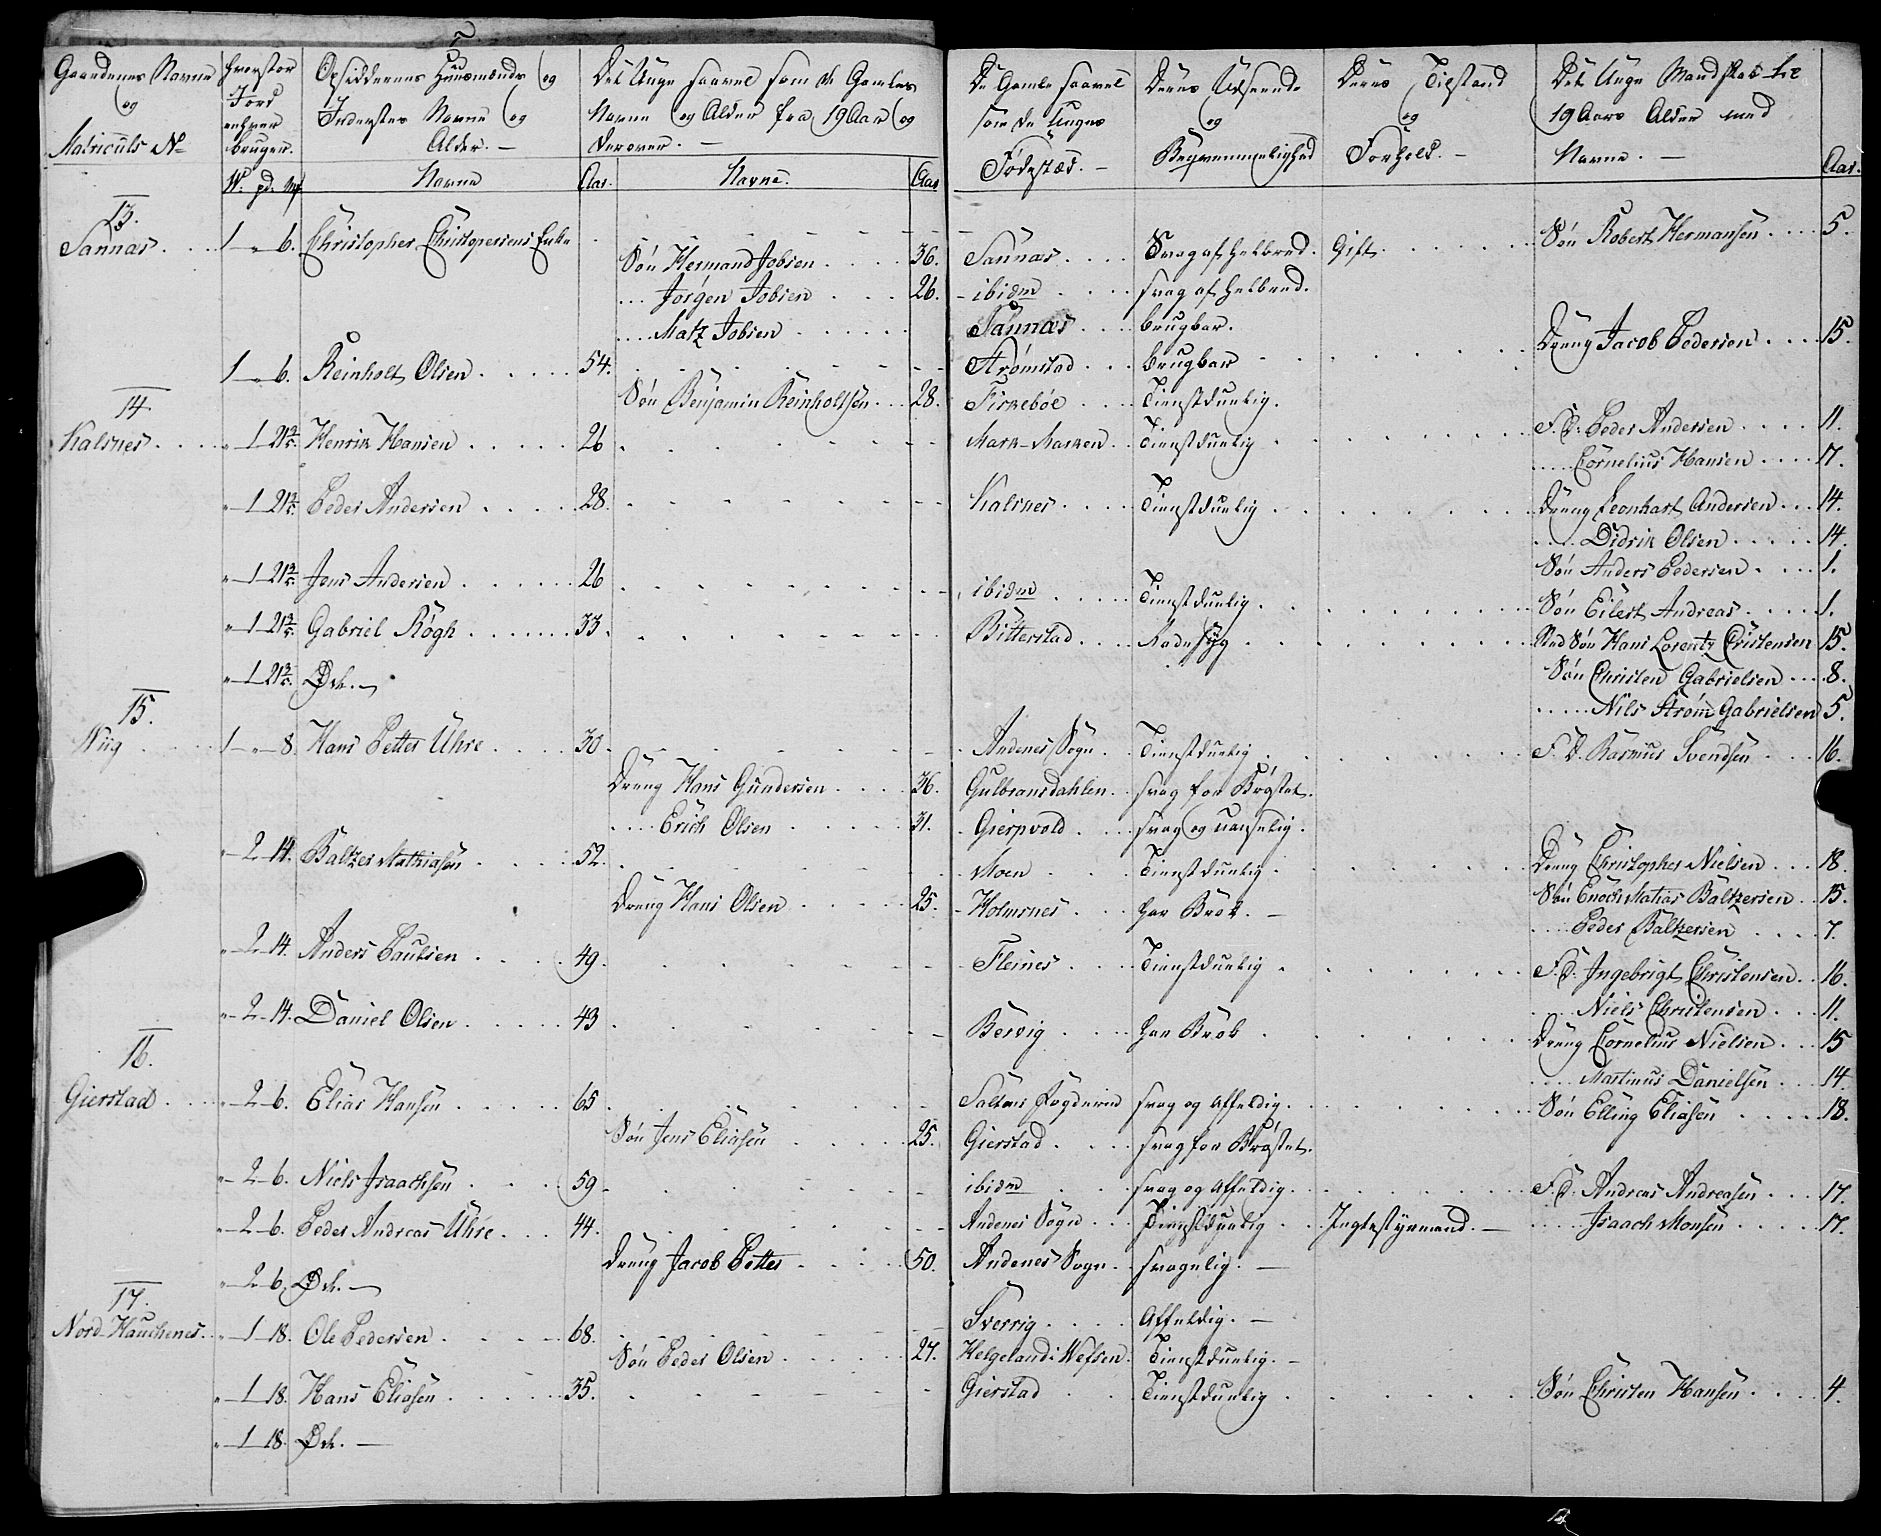 Gaardenes Navne og Matriculs No
hvorstor Jord enhver bruger.
W. pd. Mk
Opsiddernes Huusmænds og Inderstes Navne og Alder. —
Navne
Aar.
Det Unge saavel som de Gamles Navne og Alder fra 19 Aar og derover. —
Navne.
Aar
De Gamle saavel som de Unges Fødested. —
Deres Udseende og Beqvemmelighed
Deres Tilstand og Forhold. —
Det Unge Mandskab til 19 Aars Alder med Navne. —
Aar.
13.
Sannæs . . . 1 " 6. Christopher Christopersens Enke
Søn Robert Hermansen . . . . 5.
Søn Hermand Jobsen . . . . 36. Sannæs . . . . Svag af helbred. Gift
. . . Jørgen Jobsen . . . 26. - ibidm . . . . svag af helbred.
. . . . Matz Jobsen . . . . . . Sannæs . . . brugbar.
Dreng Jacob Pedersen . . . . 15.
1 " 6. Reinholt Olsen . . . . . 54. Strømstad . . . brugbar
Søn Benjamin Reinholtsen . . . 28. Firkebøe . . . . Tienstduelig.
14.
Kalsnes . . . . " 1 21 3/5. Henrik Hansen . . . . . 26 Mark-Marken . . Tienstduelig
F. D: Peder Andersen . . . . 11.
. . . . . Cornelius Hansen . . . . 17.
" 1 21 3/5. Peder Andersen . . . . 28. Kalsnes . . . . Tienstduelig
Dreng Leonhart Andersen . . . 14.
. . . . . Didrik Olsen . . . . . 14.
Søn Anders Pedersen . . . . 1.
" 1 21 3/5. Jens Andersen . . . . . . 26 ibidm . . . . . Tienstduelig.
Søn Eilert Andreas . . . . . 1.
" 1 21 3/5. Gabriel Røgh . . . . . . 33. Bitterstad . . . . Radesyg
Sted Søn Hans Lorentz Christensen 15.
" 1 21 3/5. Øde. —
Søn Christen Gabrielsen . . . . 8.
. . . . . Nils Strøm Gabrielsen 5.
15.
Niig . . . . 1 " 8. Hans Petter Uhre . . . . 30. Andenes Sogn . . Tienstduelig
F. D. Rasmus Svendsen . . . . 16.
Dreng Hans Gundersen . . . . 36. Gulbransdahlen . . svag for Brøstet.
. . . . Erich Olsen . . . . . 31. Gierpvold . . . svag og uanselig.
" 2 14. Baltzer Mathiasen . . . . . 52. Moen . . . . Tienstduelig.
Dreng Christopher Nielsen . . . 18.
Dreng Hans Olsen . . . . . 25. Holmsnes . . . har Brok. —
Søn Enoch Matias Baltzersen . . 15.
. . . . Peder Baltzersen . . . . 7.
" 2 14. Anders Paulsen . . . . 49. Fleines . . . . Tienstduelig
F. D: Ingebrigt Christensen . . 16.
. . . . Niels Christensen . . . 11.
" 2 14. Daniel Olsen . . . . . 43. Bervig . . . . har Brok
Dreng Cornelius Nielsen . . . 15
. . . . Martinus Danielsen . . . 14.
16.
Gierstad . . . " 2 6. Elias Hansen . . . . . 65. Saltens Fogderie svag og Affeldig.
Søn Elling Eliasen . . . . . 18.
Søn Jens Eliasen . . . . . 25. Gierstad . . . . svag for Brøstet.
" 2 6. Niels Isaachsen . . . . 59. ibidm . . . svag og Affeldig.
F. D: Andreas Andreasen . . . 17.
" 2 6. Peder Andreas Uhre . . . 44. Andenes Sogn . . . Tienstduelig . . .
. . . . . Isaach Monsen . . . . . 17.
Dreng Jacob Petter . . . . . 50. Andenes Sogn . . svagelig. —
" 2 6. Øde. —
17.
Nord-Hauchenes . . " 1 18. Ole Pedersen . . . . . 68. Sverrig . . . . Affeldig. —
Søn Peder Olsen . . . . . 27. Helgeland: Wefsen. Tienstduelig. —
" 1 18. Hans Eliasen . . . . . 35. Gierstad . . . Tienstduelig
Søn Christen Hansen . . . . 4.
" 1 18. Øde. —